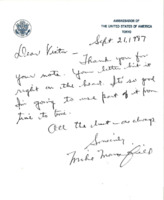 AMBASSADOR OF THE
UNITED STATES OF AMERICA
TOKYO
Sept 21, 1987
Dear Keith –
Thank you for
your note. Your letter hit it
right on the head. It's so good
I'm going to use part of it from
time to time.
All the best – as always
Sincerely,
Mike Mansfield